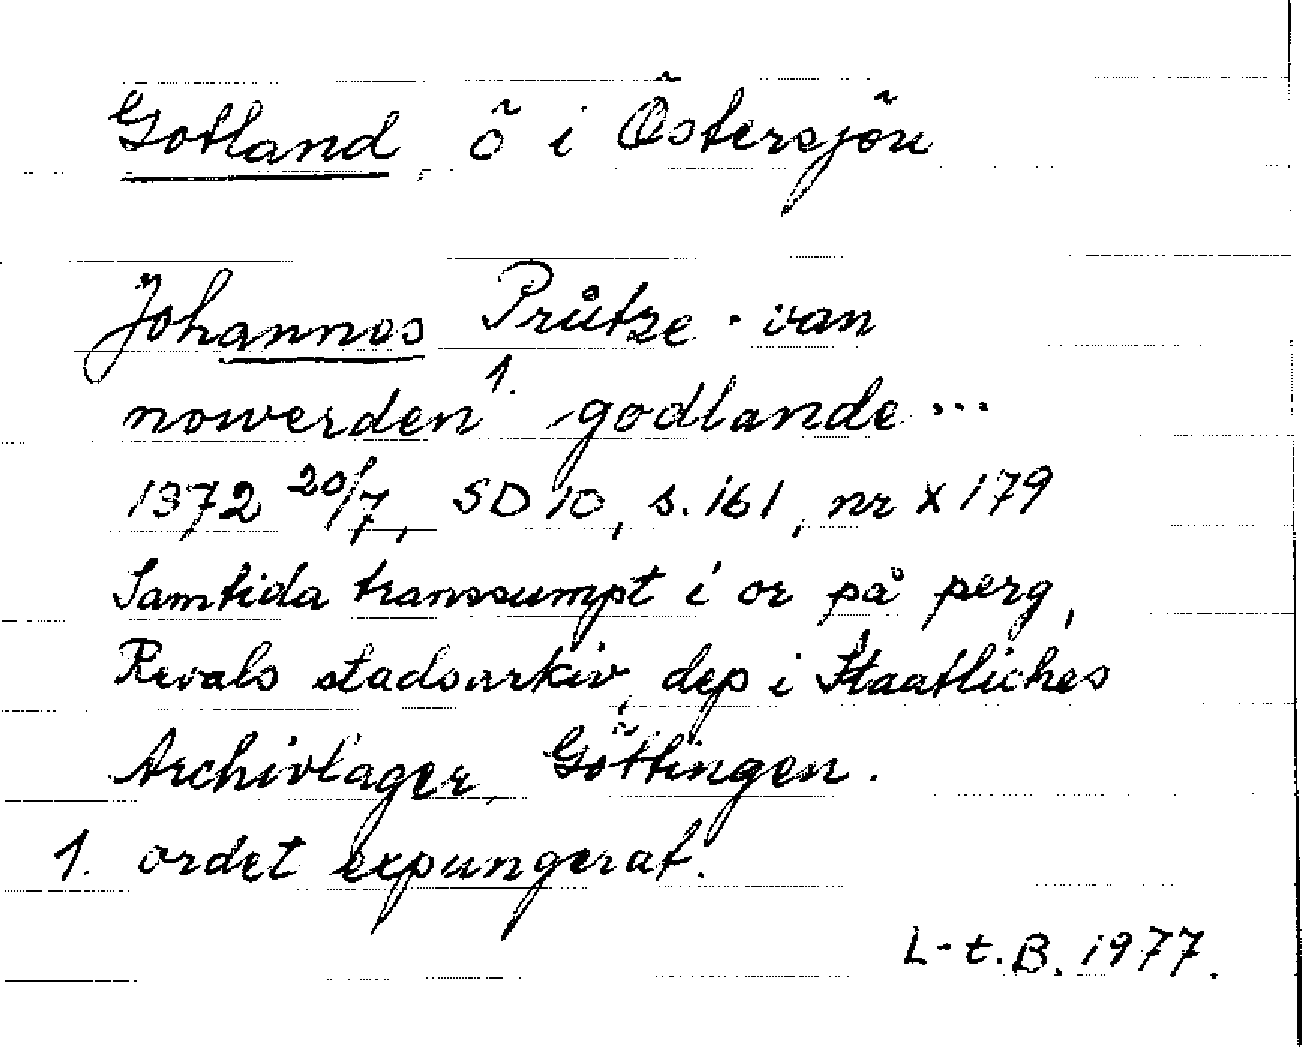 Gotland, ö i Östersjön
Johannes Průtze · van
nowerden 1. godlande ...
1372 20/7, SD 10, s. 161, nr X 179
Samtida transsumpt i or på perg,
Revals stadsarkiv, dep i Staatliches
Archivlager, Göttingen.
1. ordet expungerat.
L-t. B. 1977.